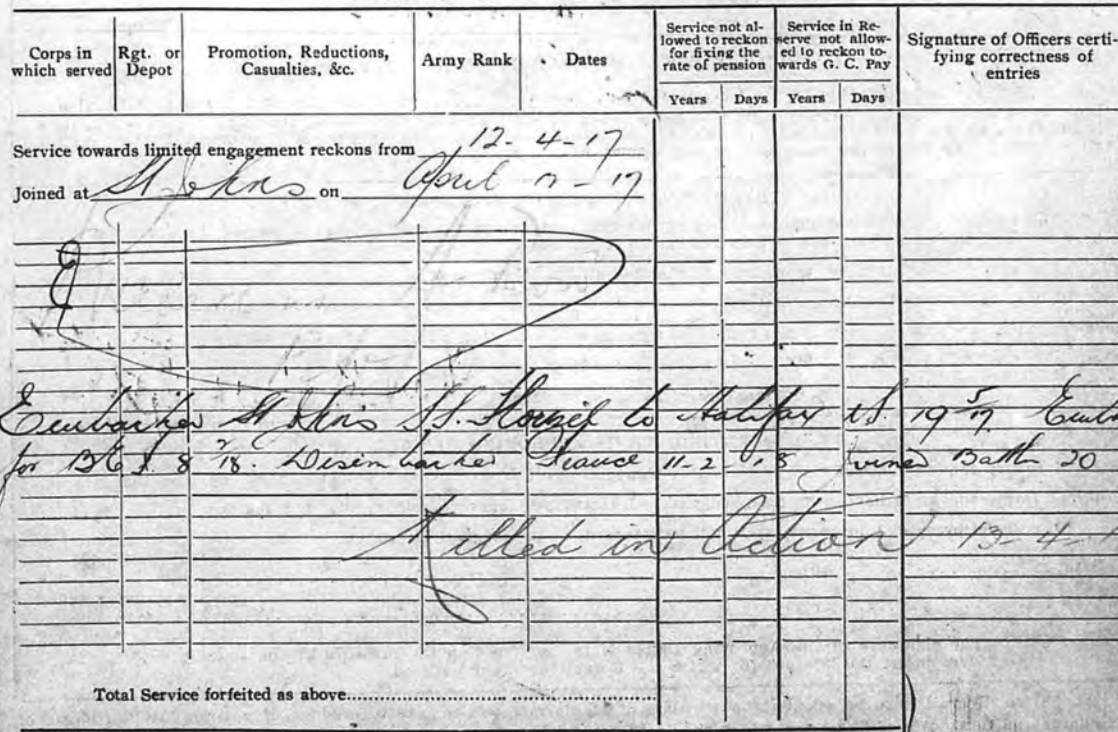 Corps in which served
Rgt. or Depot
Promotion, Reductions, Casualties, &c.
Army Rank
Dates
Service not allowed to reckon for fixing the rate of pension
Years Days
Service in Reserve not allowed to reckon towards G. C. Pay
Years Days
Signature of Officers certifying correctness of entries
Service towards limited engagement reckons from 12-4-17
Joined at St Johns on April 12-17
Embarked St Johns S.S. Florizel to Halifax N.S. 19 5/17 Emb
for BEF 8 2/18. Disembarked France 11-2-18 joined Battn 20
Killed in Action 13-4-
Total Service forfeited as above